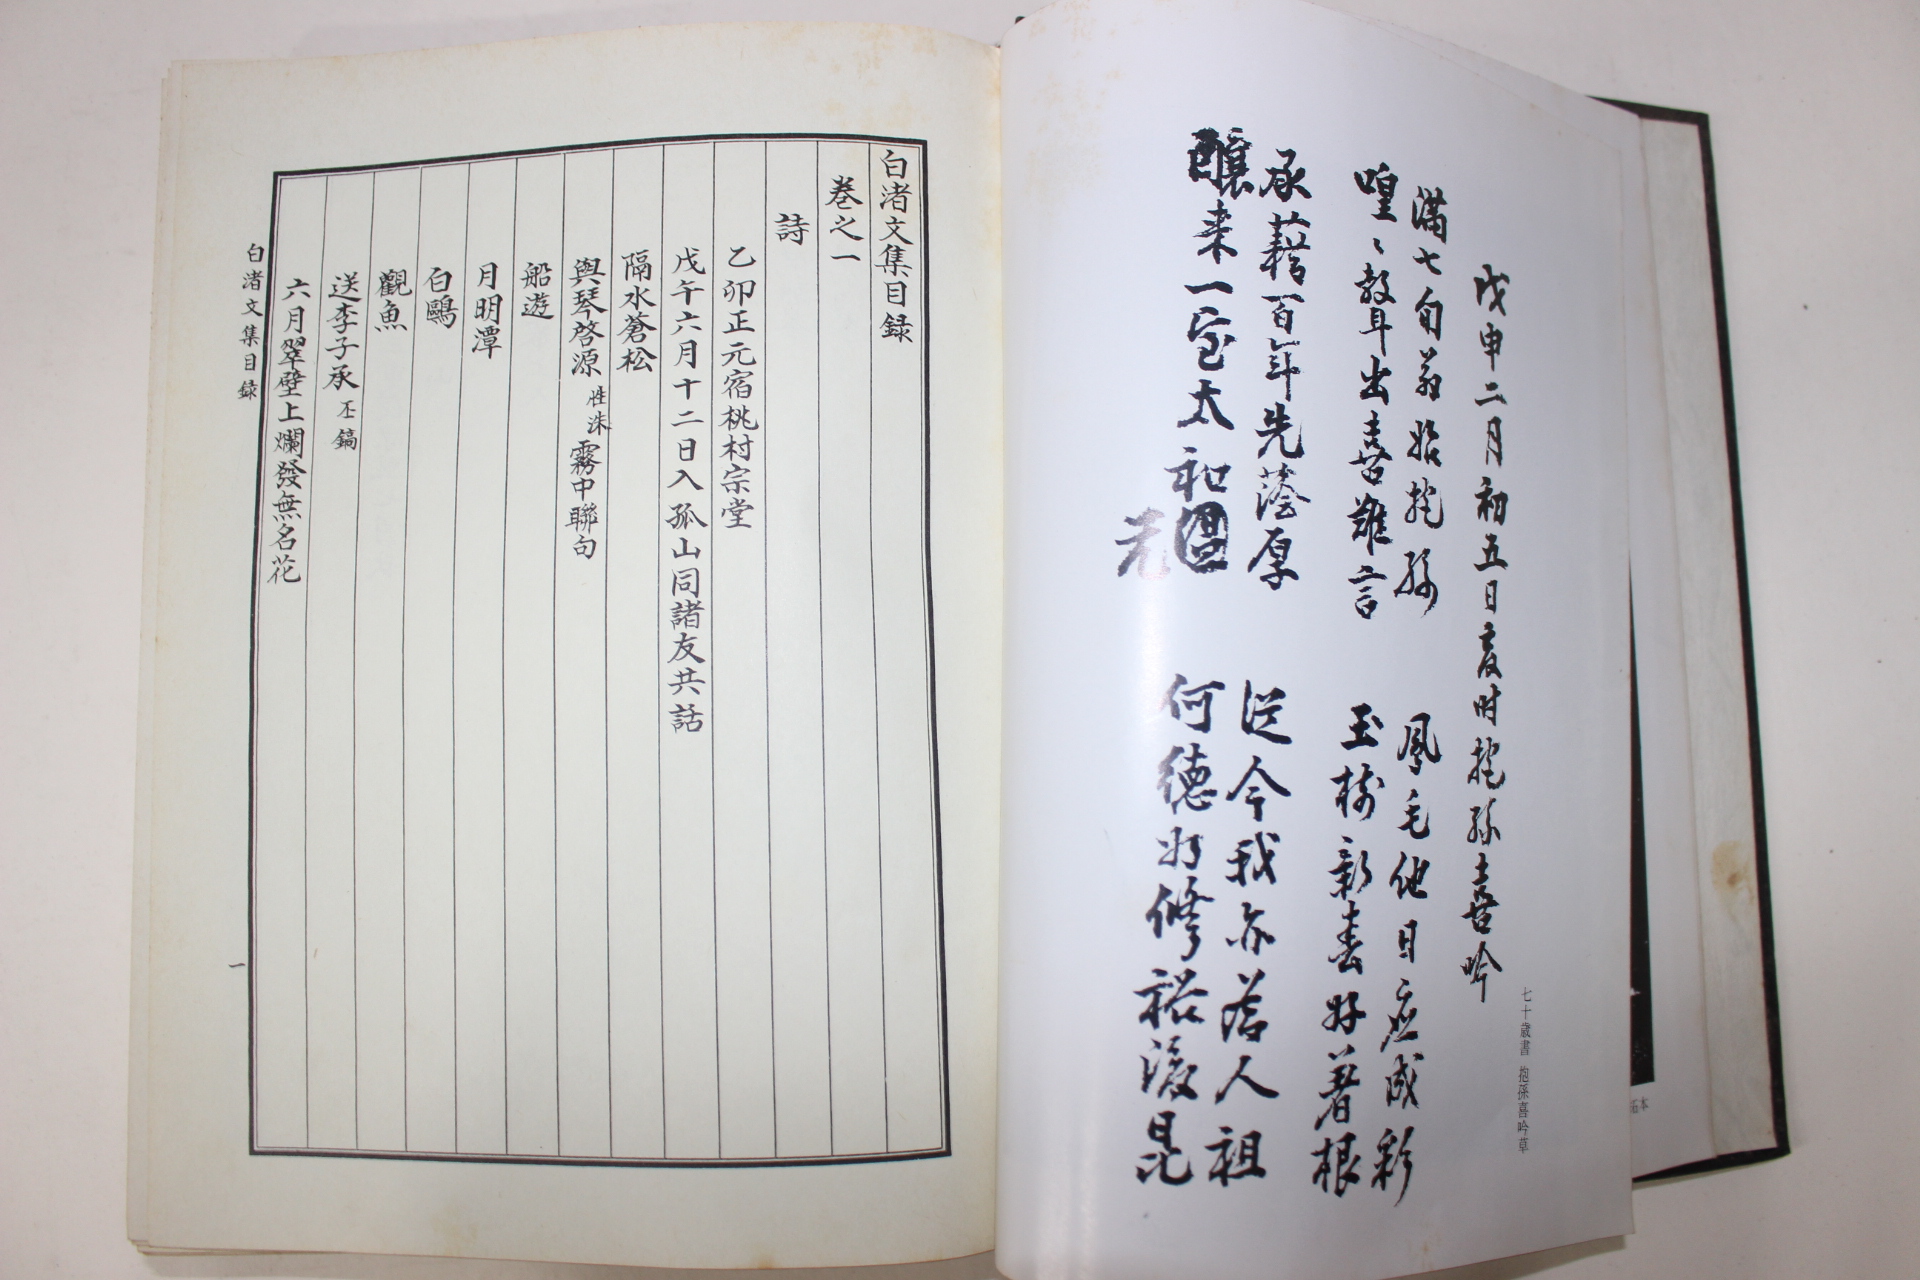 戊申二月初五日亥时抱孫喜吟
滿七旬翁始抱孫
鳳毛他日应成彩
喤〻教耳出喜難言
玉樹新春好著根
承藉百年先蔭厚
從今我亦爲人祖
釀来一室太和温
何德好修裕後昆
七十歲書 抱孫喜吟草
拓本
白渚文集目録
卷之一
詩
乙卯正元宿桃村宗堂
戊午六月十二日入孤山同諸友共話
隔水蒼松
與琴啓源 性洙 霧中聯句
船遊
月明潭
白鷗
觀魚
送李子承 丕鎬
六月翠壁上爛發無名花
白渚文集目録
一